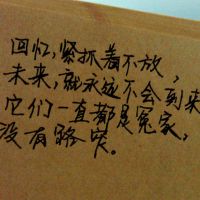 回忆,紧抓着不放,
未来,就永远不会到来
它们一直都是冤家,
没有路窄。